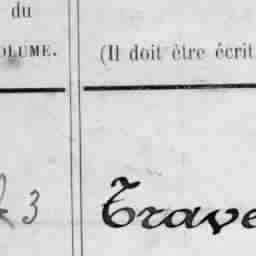 du
OLUME.
(Il doit être écrit
3
Trave